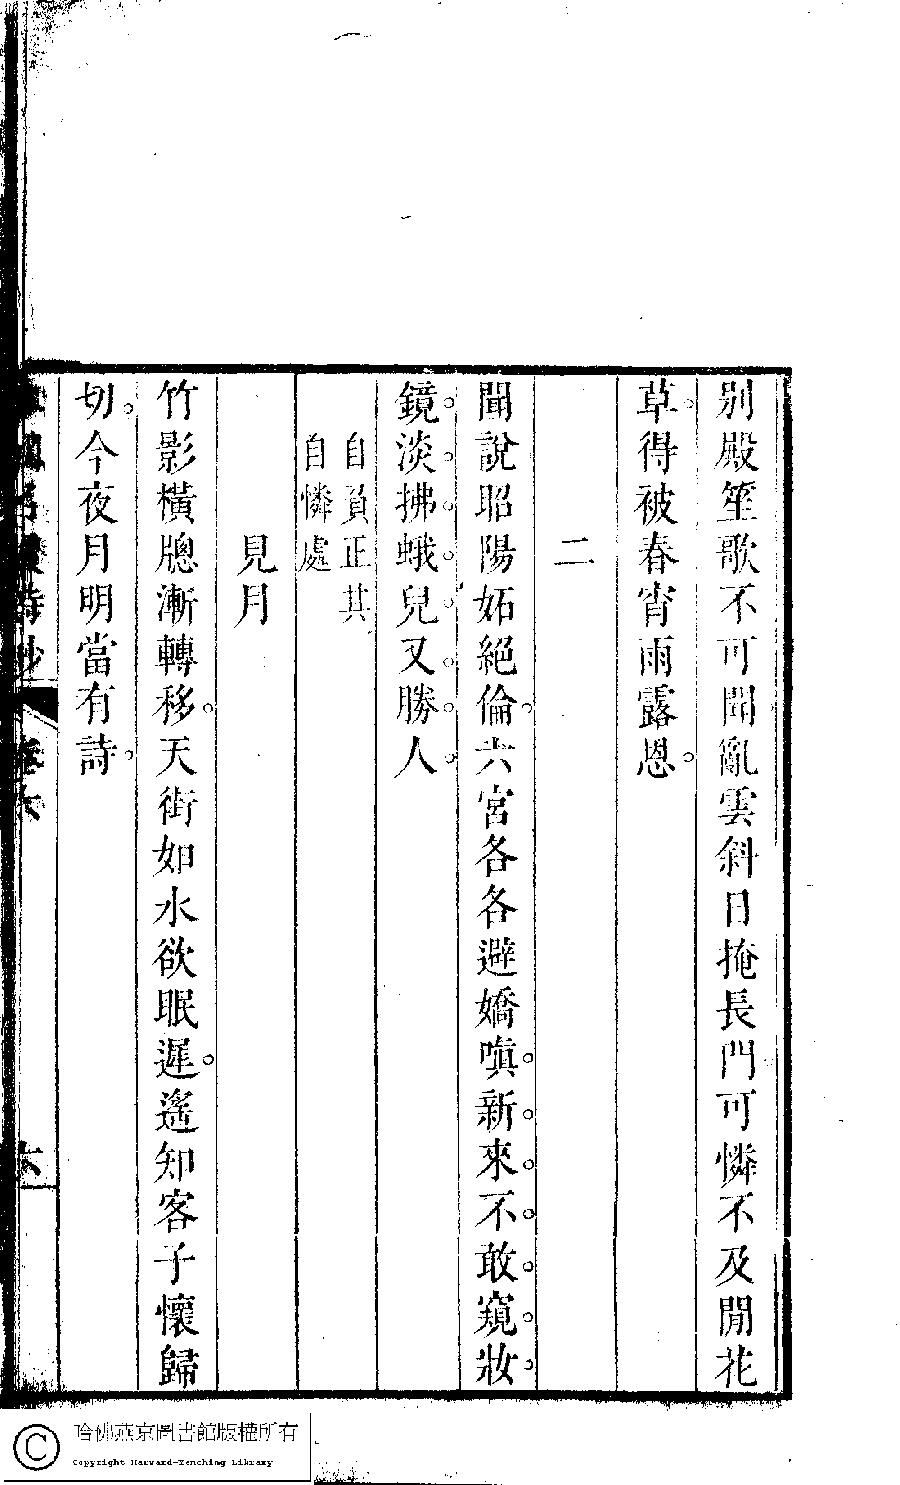 别殿笙歌不可聞亂雲斜日掩長門可憐不及閒花
草得被春宵雨露恩
二
聞說昭陽妬絕倫六宮各各避嬌嗔新來不敢窺妝
鏡淡拂蛾兒又勝人
自負正其
自憐處
見月
竹影橫牕漸轉移天街如水欲眠遲遙知客子懷歸
切今夜月明當有詩
詩鈔
卷六
六
哈佛燕京圖書館版權所有
Copyright Harvard-Yenching Library